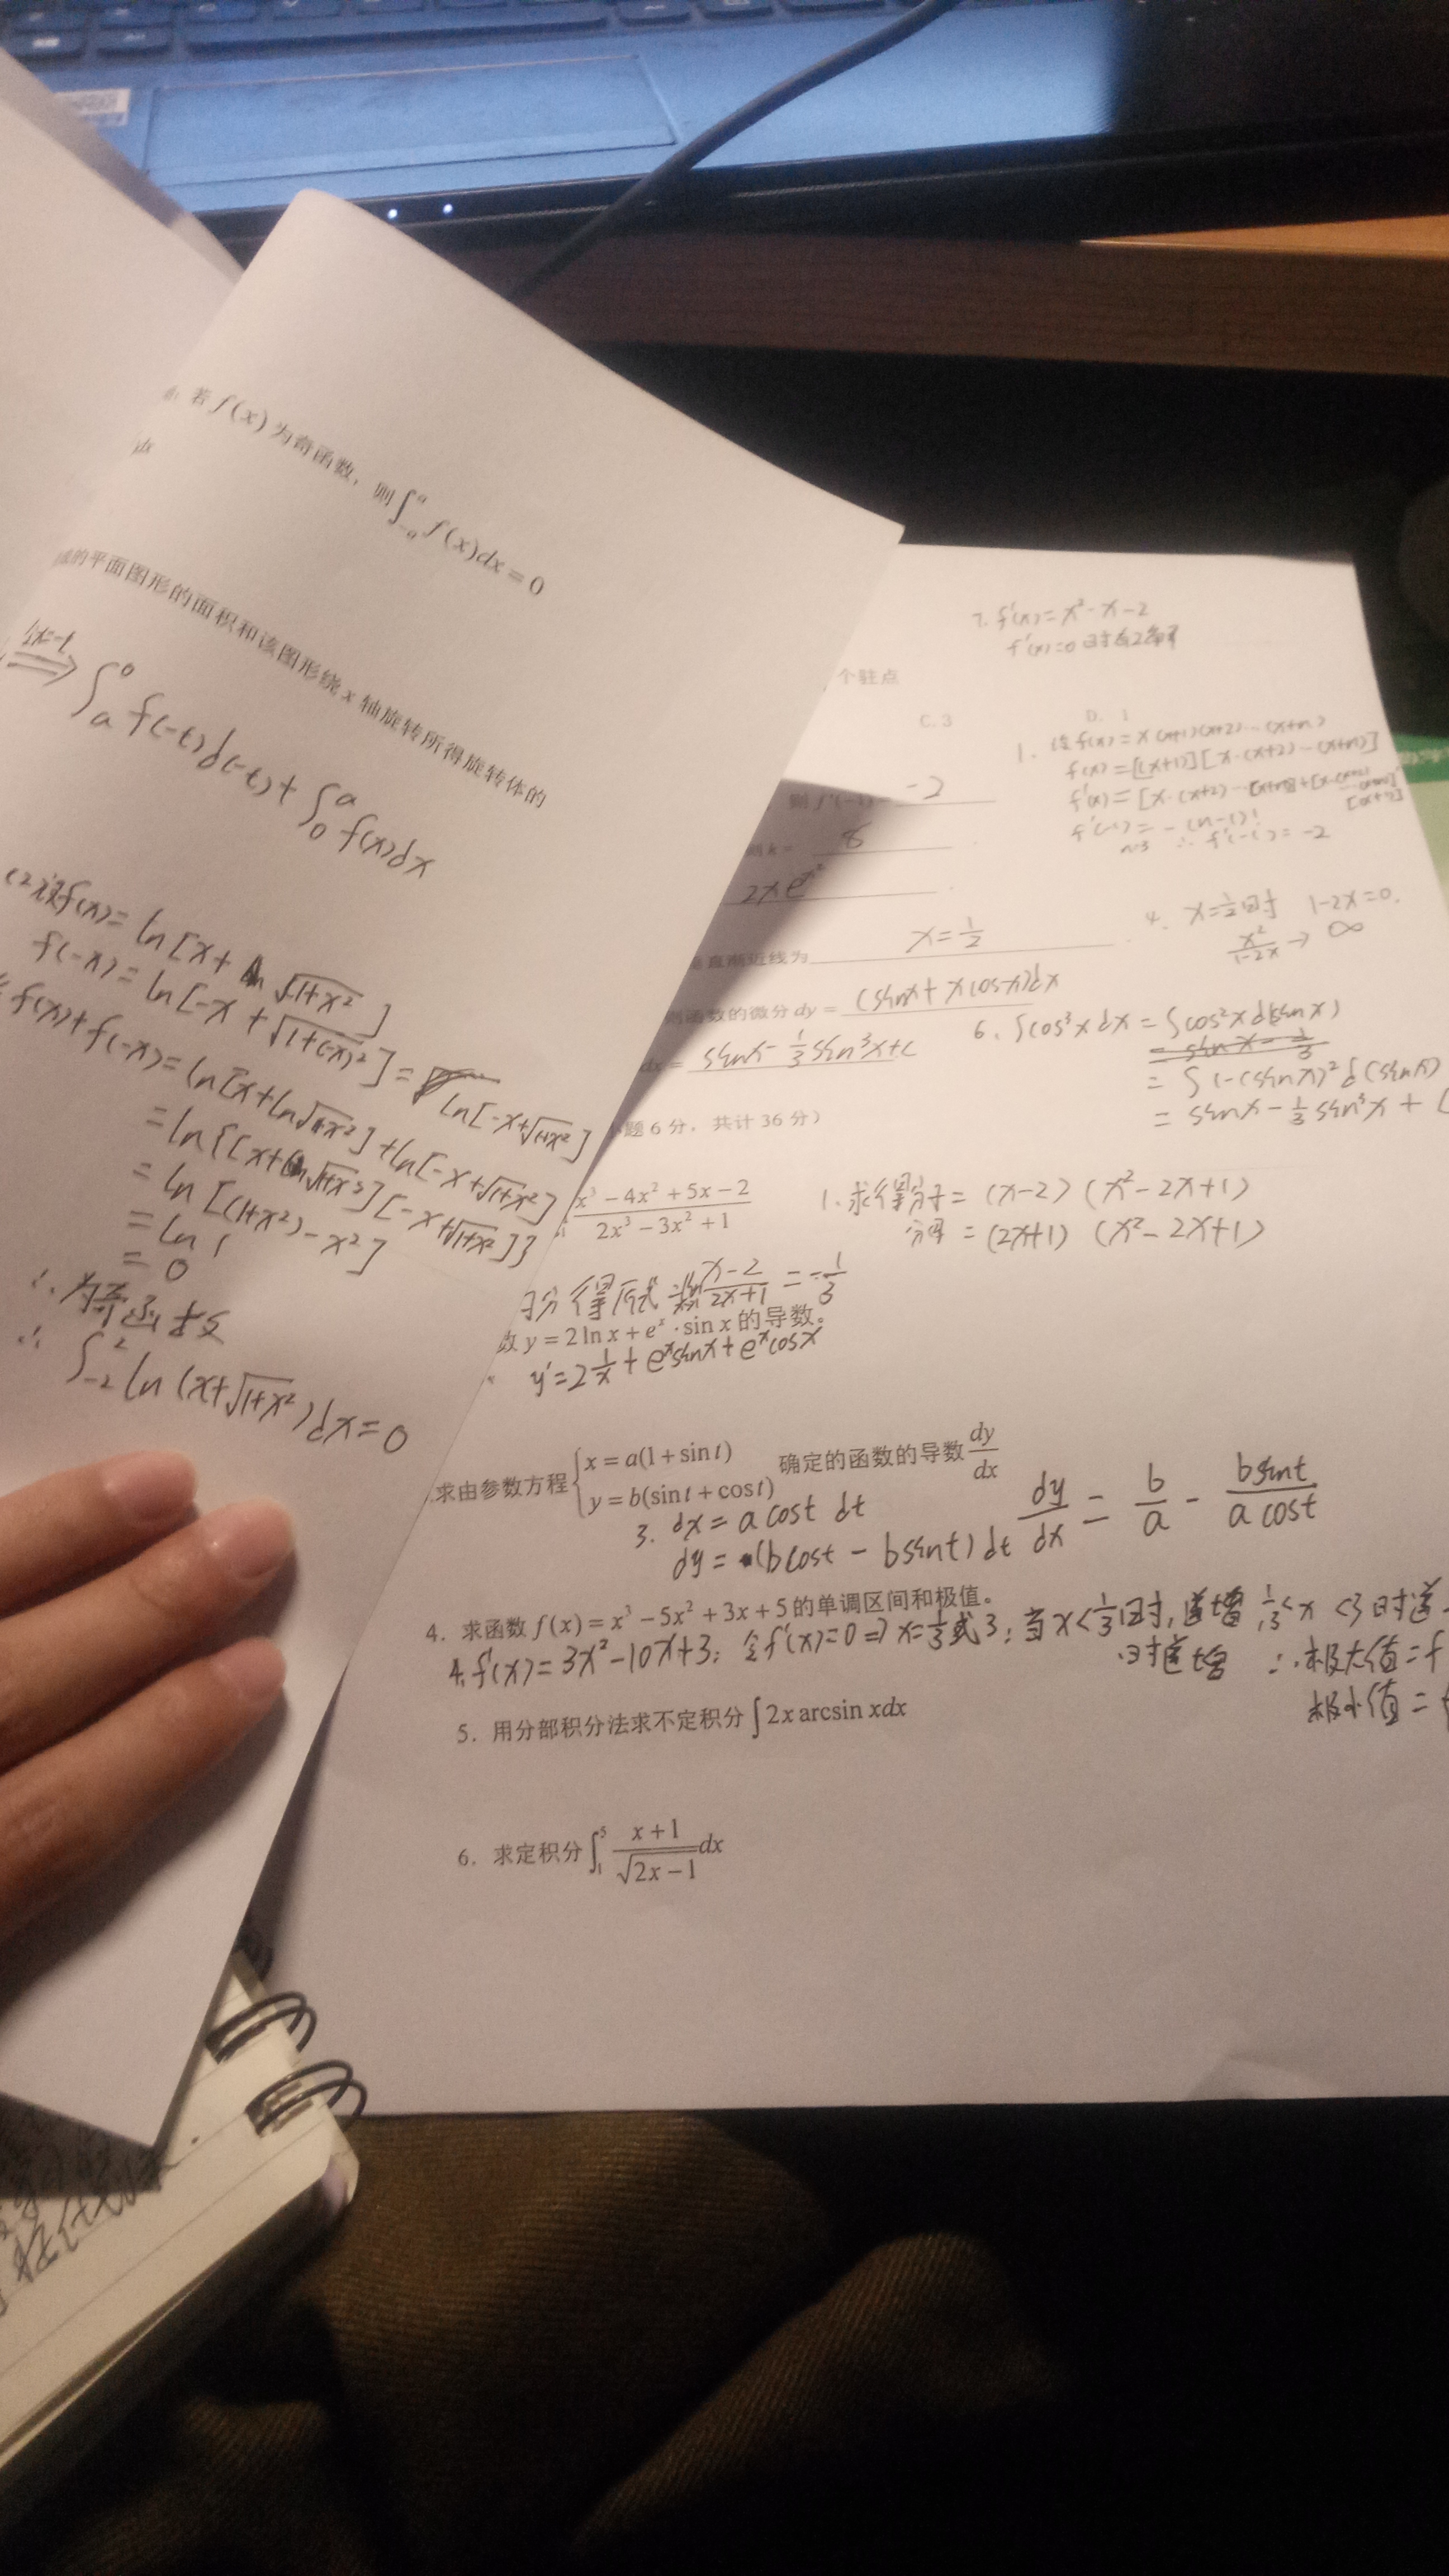 若 f(x) 为奇函数，则∫_{-a}^{a} f(x)dx = 0
dx
的平面图形的面积和该图形绕 x 轴旋转所得旋转体的
∫_a^0 f(-t)d(-t) + ∫_0^a f(x)dx
f(x) = ln[x + √(1+x²)]
f(-x) = ln[-x + √(1+(-x)²)] = ln[-x+√(1+x²)]
f(x)+f(-x) = ln[x+ln√(1+x²)] + ln[-x+√(1+x²)]
= ln{[x+√(1+x²)][-x+√(1+x²)]}
= ln[(1+x²)-x²]
= ln 1
= 0
∴ 为奇函数
∴ ∫_{-2}^{2} ln(x+√(1+x²))dx = 0
7. f'(x) = x² - x - 2
f'(x)=0时有2个
个驻点
C. 3
D. 1
1. 设 f(x) = x(x+1)(x+2)…(x+n)
f(x) = [(x+1)][x·(x+2)…(x+n)]
f'(-1) = -(n-1)!
n=3 ∴ f'(-1) = -2
则 f'(-1) = -2
则 k = 8
2xe^{x²}
垂直渐近线为 x=1/2
4. x=1/2时 1-2x=0.
x²/(1-2x) → ∞
则函数的微分 dy = (sinx + xcosx)dx
dx = sinx - 1/3 sin³x + c
6. ∫cos³x dx = ∫cos²x d(sinx)
= ∫1-(sinx)² d(sinx)
= sinx - 1/3 sin³x + C
题 6 分，共计 36 分）
(x³ - 4x² + 5x - 2)/(2x³ - 3x² + 1)
1. 求得分子 = (x-2)(x²-2x+1)
分母 = (2x+1)(x²-2x+1)
得原式 (x-2)/(2x+1) = -1/3
数 y = 2 ln x + e^x · sin x 的导数。
y' = 2 1/x + e^x sinx + e^x cosx
求由参数方程 { x = a(1 + sin t) y = b(sin t + cos t) 确定的函数的导数 dy/dx
3. dx = a cost dt
dy = (bcost - bsint)dt
dy/dx = b/a - bsint/acost
4. 求函数 f(x) = x³ - 5x² + 3x + 5 的单调区间和极值。
4. f'(x) = 3x² - 10x + 3; 令f'(x)=0 ⇒ x=1/3或3; 当x<1/3时, 递增 1/3<x<3时递
时递增 ∴ 极大值 = f
极小值 =
5. 用分部积分法求不定积分 ∫ 2x arcsin xdx
6. 求定积分 ∫_1^5 (x+1)/√(2x-1) dx